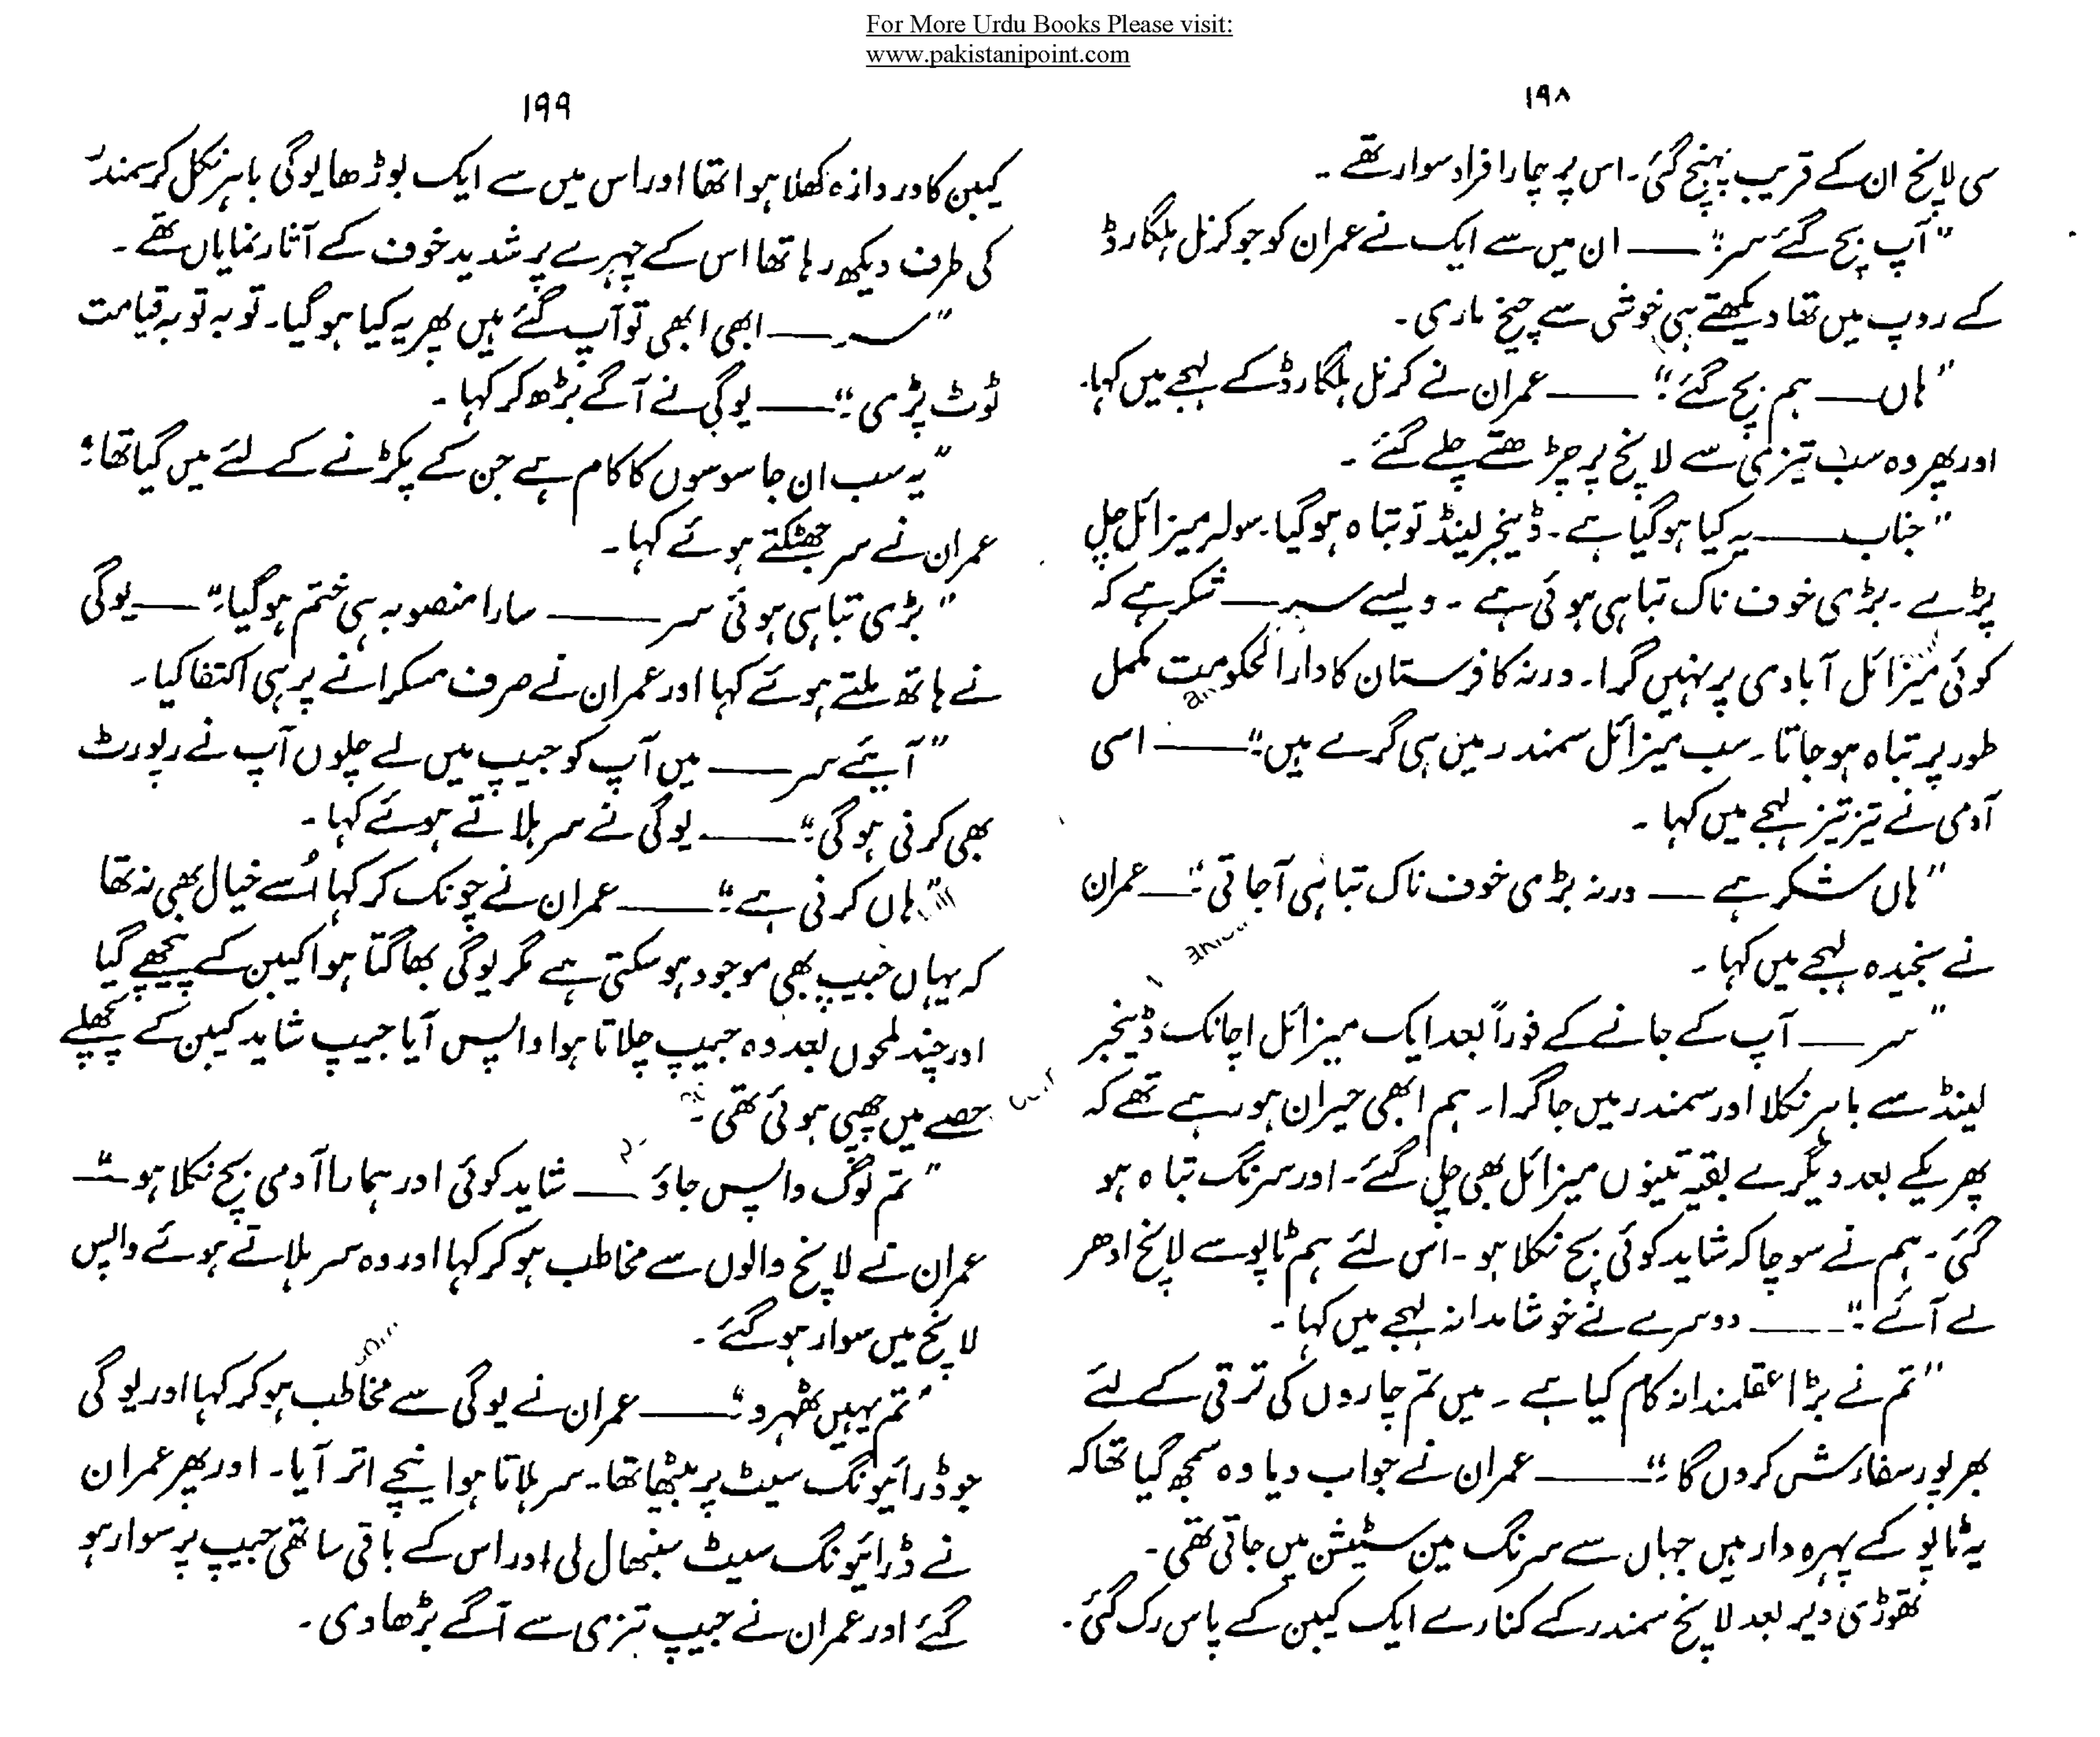 For More Urdu Books Please visit:
www.pakistanipoint.com
۱۹۸
سی لانچ ان کے قریب پہنچ گئی۔ اس پر چار افراد سوار تھے۔
"آپ بچ گئے سر"۔ ــــــ ان میں سے ایک نے عمران کو جو کرنل ہلگارڈ
کے روپ میں تھا دیکھتے ہی خوشی سے چیخ ماری۔
"ہاں ــــــ ہم بچ گئے"۔ ــــــ عمران نے کرنل ہلگارڈ کے لہجے میں کہا۔
اور پھر وہ سب تیزی سے لانچ پر چڑھتے چلے گئے۔
"جناب ــــــ یہ کیا ہو گیا ہے۔ ڈینجر لینڈ تو تباہ ہو گیا۔ سولر میزائل چل
پڑے۔ بڑی خوف ناک تباہی ہوئی ہے۔ ویسے سر ــــــ شکر ہے کہ
کوئی میزائل آبادی پر نہیں گرا۔ ورنہ کافرستان کا دارالحکومت مکمل
طور پر تباہ ہو جاتا۔ سب میزائل سمندر میں ہی گرے ہیں"۔ ــــــ اسی
آدمی نے تیز تیز لہجے میں کہا۔
"ہاں شکر ہے ــــــ ورنہ بڑی خوف ناک تباہی آجاتی"۔ ــــــ عمران
نے سنجیدہ لہجے میں کہا۔
"سر ــــــ آپ کے جانے کے فوراً بعد ایک میزائل اچانک ڈینجر
لینڈ سے باہر نکلا اور سمندر میں جا گرا۔ ہم ابھی حیران ہو رہے تھے کہ
پھر یکے بعد دیگرے بقیہ تینوں میزائل بھی چل گئے۔ اور سرنگ تباہ ہو
گئی۔ ہم نے سوچا کہ شاید کوئی بچ نکلا ہو۔ اس لئے ہم ٹاپو سے لانچ ادھر
لے آئے"۔ ــــــ دوسرے نے خوشامدانہ لہجے میں کہا۔
"تم نے بڑا عقلمندانہ کام کیا ہے۔ میں تم چاروں کی ترقی کے لئے
بھرپور سفارش کروں گا"۔ ــــــ عمران نے جواب دیا وہ سمجھ گیا تھا کہ
یہ ٹاپو کے پہرہ دار ہیں جہاں سے سرنگ مین سٹیشن میں جاتی تھی۔
تھوڑی دیر بعد لانچ سمندر کے کنارے ایک کیبن کے پاس رک گئی۔
۱۹۹
کیبن کا دروازہ کھلا ہوا تھا اور اس میں سے ایک بوڑھا یوگی باہر نکل کر سمندر
کی طرف دیکھ رہا تھا اس کے چہرے پر شدید خوف کے آثار نمایاں تھے۔
"سر ــــــ ابھی ابھی تو آپ گئے ہیں پھر یہ کیا ہو گیا۔ توبہ توبہ قیامت
ٹوٹ پڑی"۔ ــــــ یوگی نے آگے بڑھ کر کہا۔
"یہ سب ان جاسوسوں کا کام ہے جن کے پکڑنے کے لئے میں گیا تھا"۔
عمران نے سر جھٹکتے ہوئے کہا۔
"بڑی تباہی ہوئی سر ــــــ سارا منصوبہ ہی ختم ہو گیا"۔ ــــــ یوگی
نے ہاتھ ملتے ہوئے کہا اور عمران نے صرف مسکرانے پر ہی اکتفا کیا۔
"آیئے سر ــــــ میں آپ کو جیپ میں لے چلوں آپ نے رپورٹ
بھی کرنی ہو گی"۔ ــــــ یوگی نے سر ہلاتے ہوئے کہا۔
"ہاں کرنی ہے"۔ ــــــ عمران نے چونک کر کہا اُسے خیال بھی نہ تھا
کہ یہاں جیپ بھی موجود ہو سکتی ہے مگر یوگی بھاگتا ہوا کیبن کے پیچھے گیا
اور چند لمحوں بعد وہ جیپ چلاتا ہوا واپس آیا جیپ شاید کیبن کے پچھلے
حصے میں چھپی ہوئی تھی۔
"تم لوگ واپس جاؤ ــــــ شاید کوئی اور ہمارا آدمی بچ نکلا ہو"۔ ــــــ
عمران نے لانچ والوں سے مخاطب ہو کر کہا اور وہ سر ہلاتے ہوئے واپس
لانچ میں سوار ہو گئے۔
"تم یہیں ٹھہرو"۔ ــــــ عمران نے یوگی سے مخاطب ہو کر کہا اور یوگی
جو ڈرائیونگ سیٹ پر بیٹھا تھا۔ سر ہلاتا ہوا نیچے اتر آیا۔ اور پھر عمران
نے ڈرائیونگ سیٹ سنبھال لی اور اس کے باقی ساتھی جیپ پر سوار ہو
گئے اور عمران نے جیپ تیزی سے آگے بڑھا دی۔